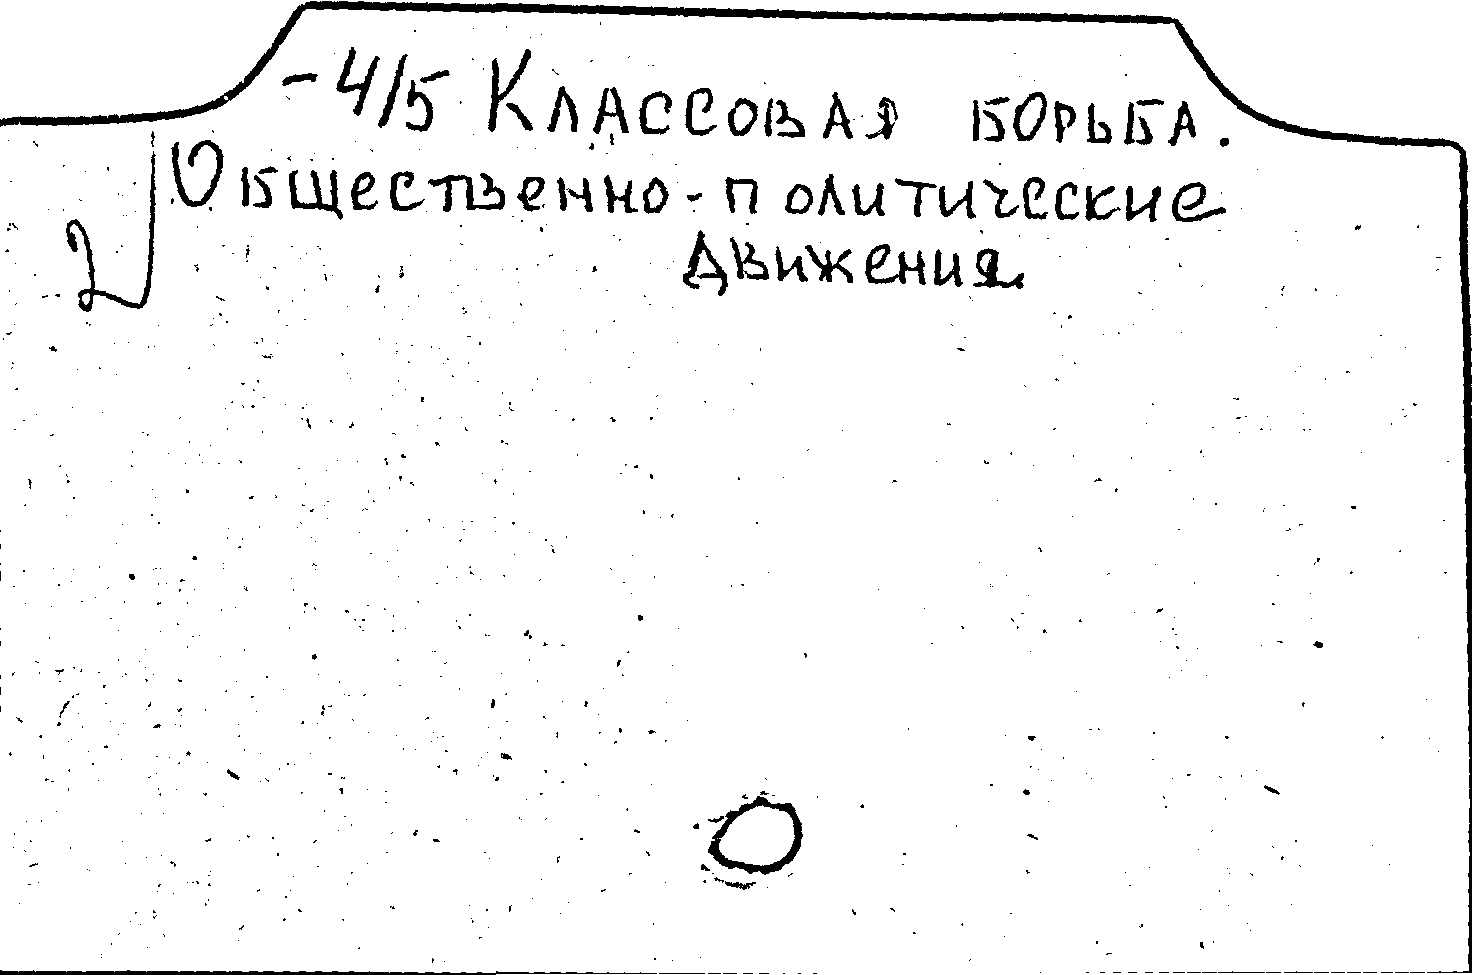 -4/5 Классовая борьба.
Общественно-политические
движения